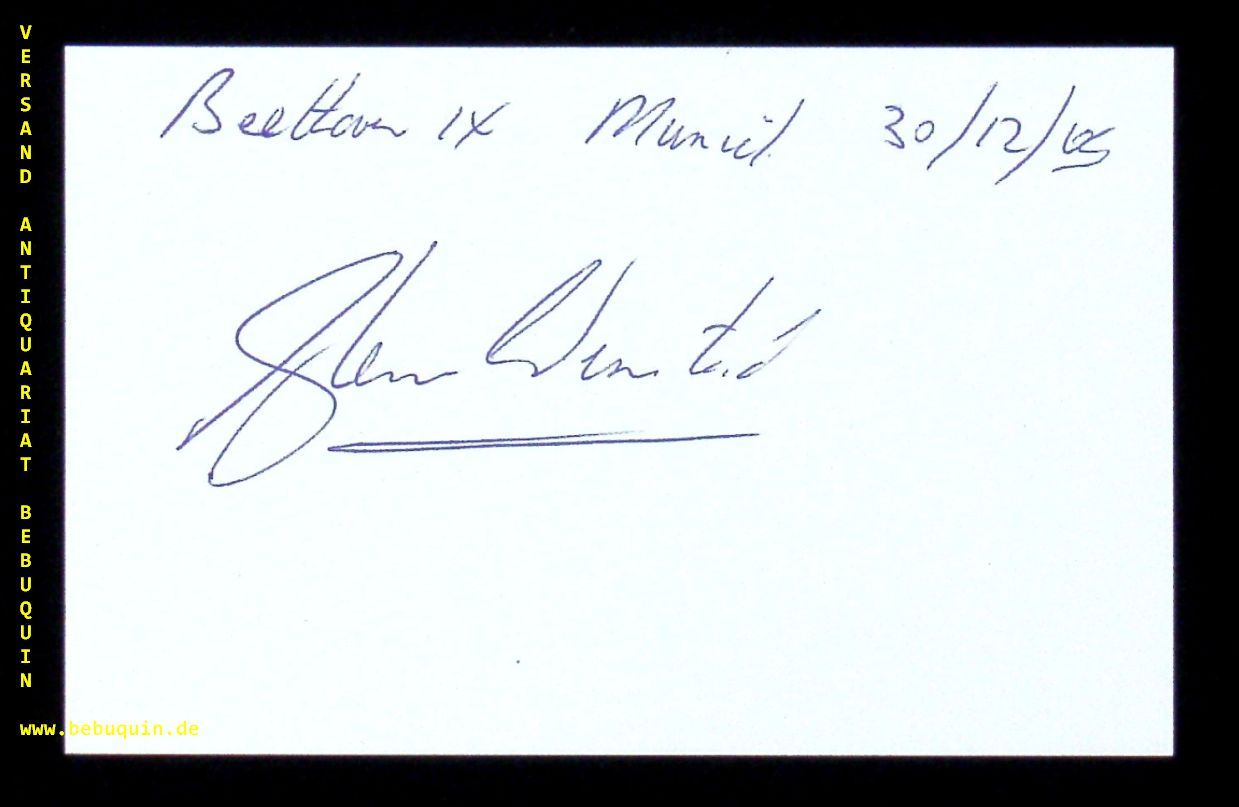 VERSAND ANTIQUARIAT BEBUQUIN
Beethoven IX Munich 30/12/05
www.bebuquin.de